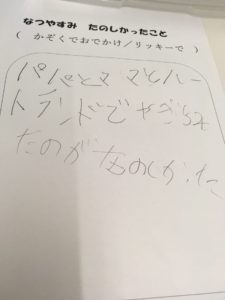 なつやすみ たのしかったこと
( かぞくでおでかけ/リッキーで )
パパとママとハー
トランドでやきうみ
たのがたのしかった